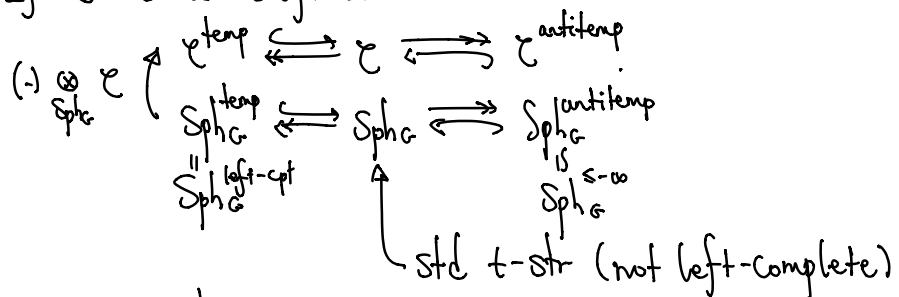 𝒞^temp ⇄ 𝒞 ⇄ 𝒞^antitemp
(-) ⊗_{Sph_G} 𝒞
Sph_G^temp ⇄ Sph_G ⇄ Sph_G^antitemp
Sph_G^left-cpt Sph_G^≤-∞
std t-str (not left-complete)